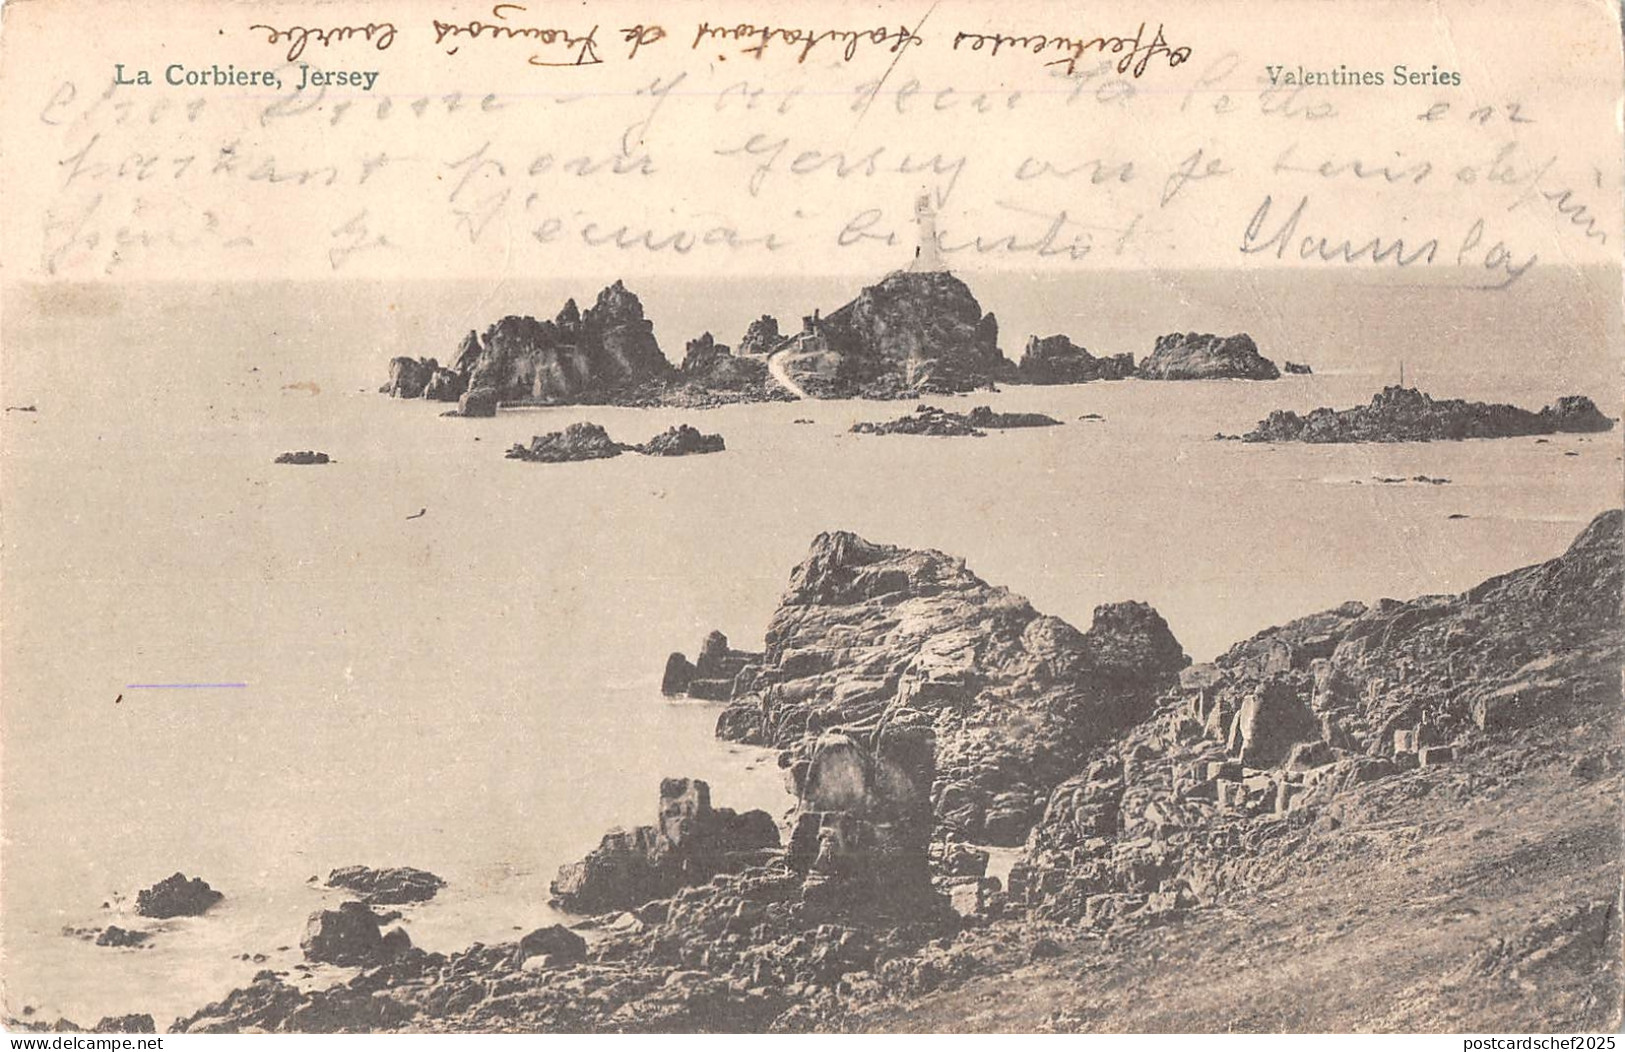 affectueuses salutations de François Courbe.
La Corbiere, Jersey
Valentines Series
Cher Pierre - J'ai reçu ta lettre en
partant pour Jersey ou je suis depuis
Je t'écrirai bientôt. Stanislas
postcardschef2025